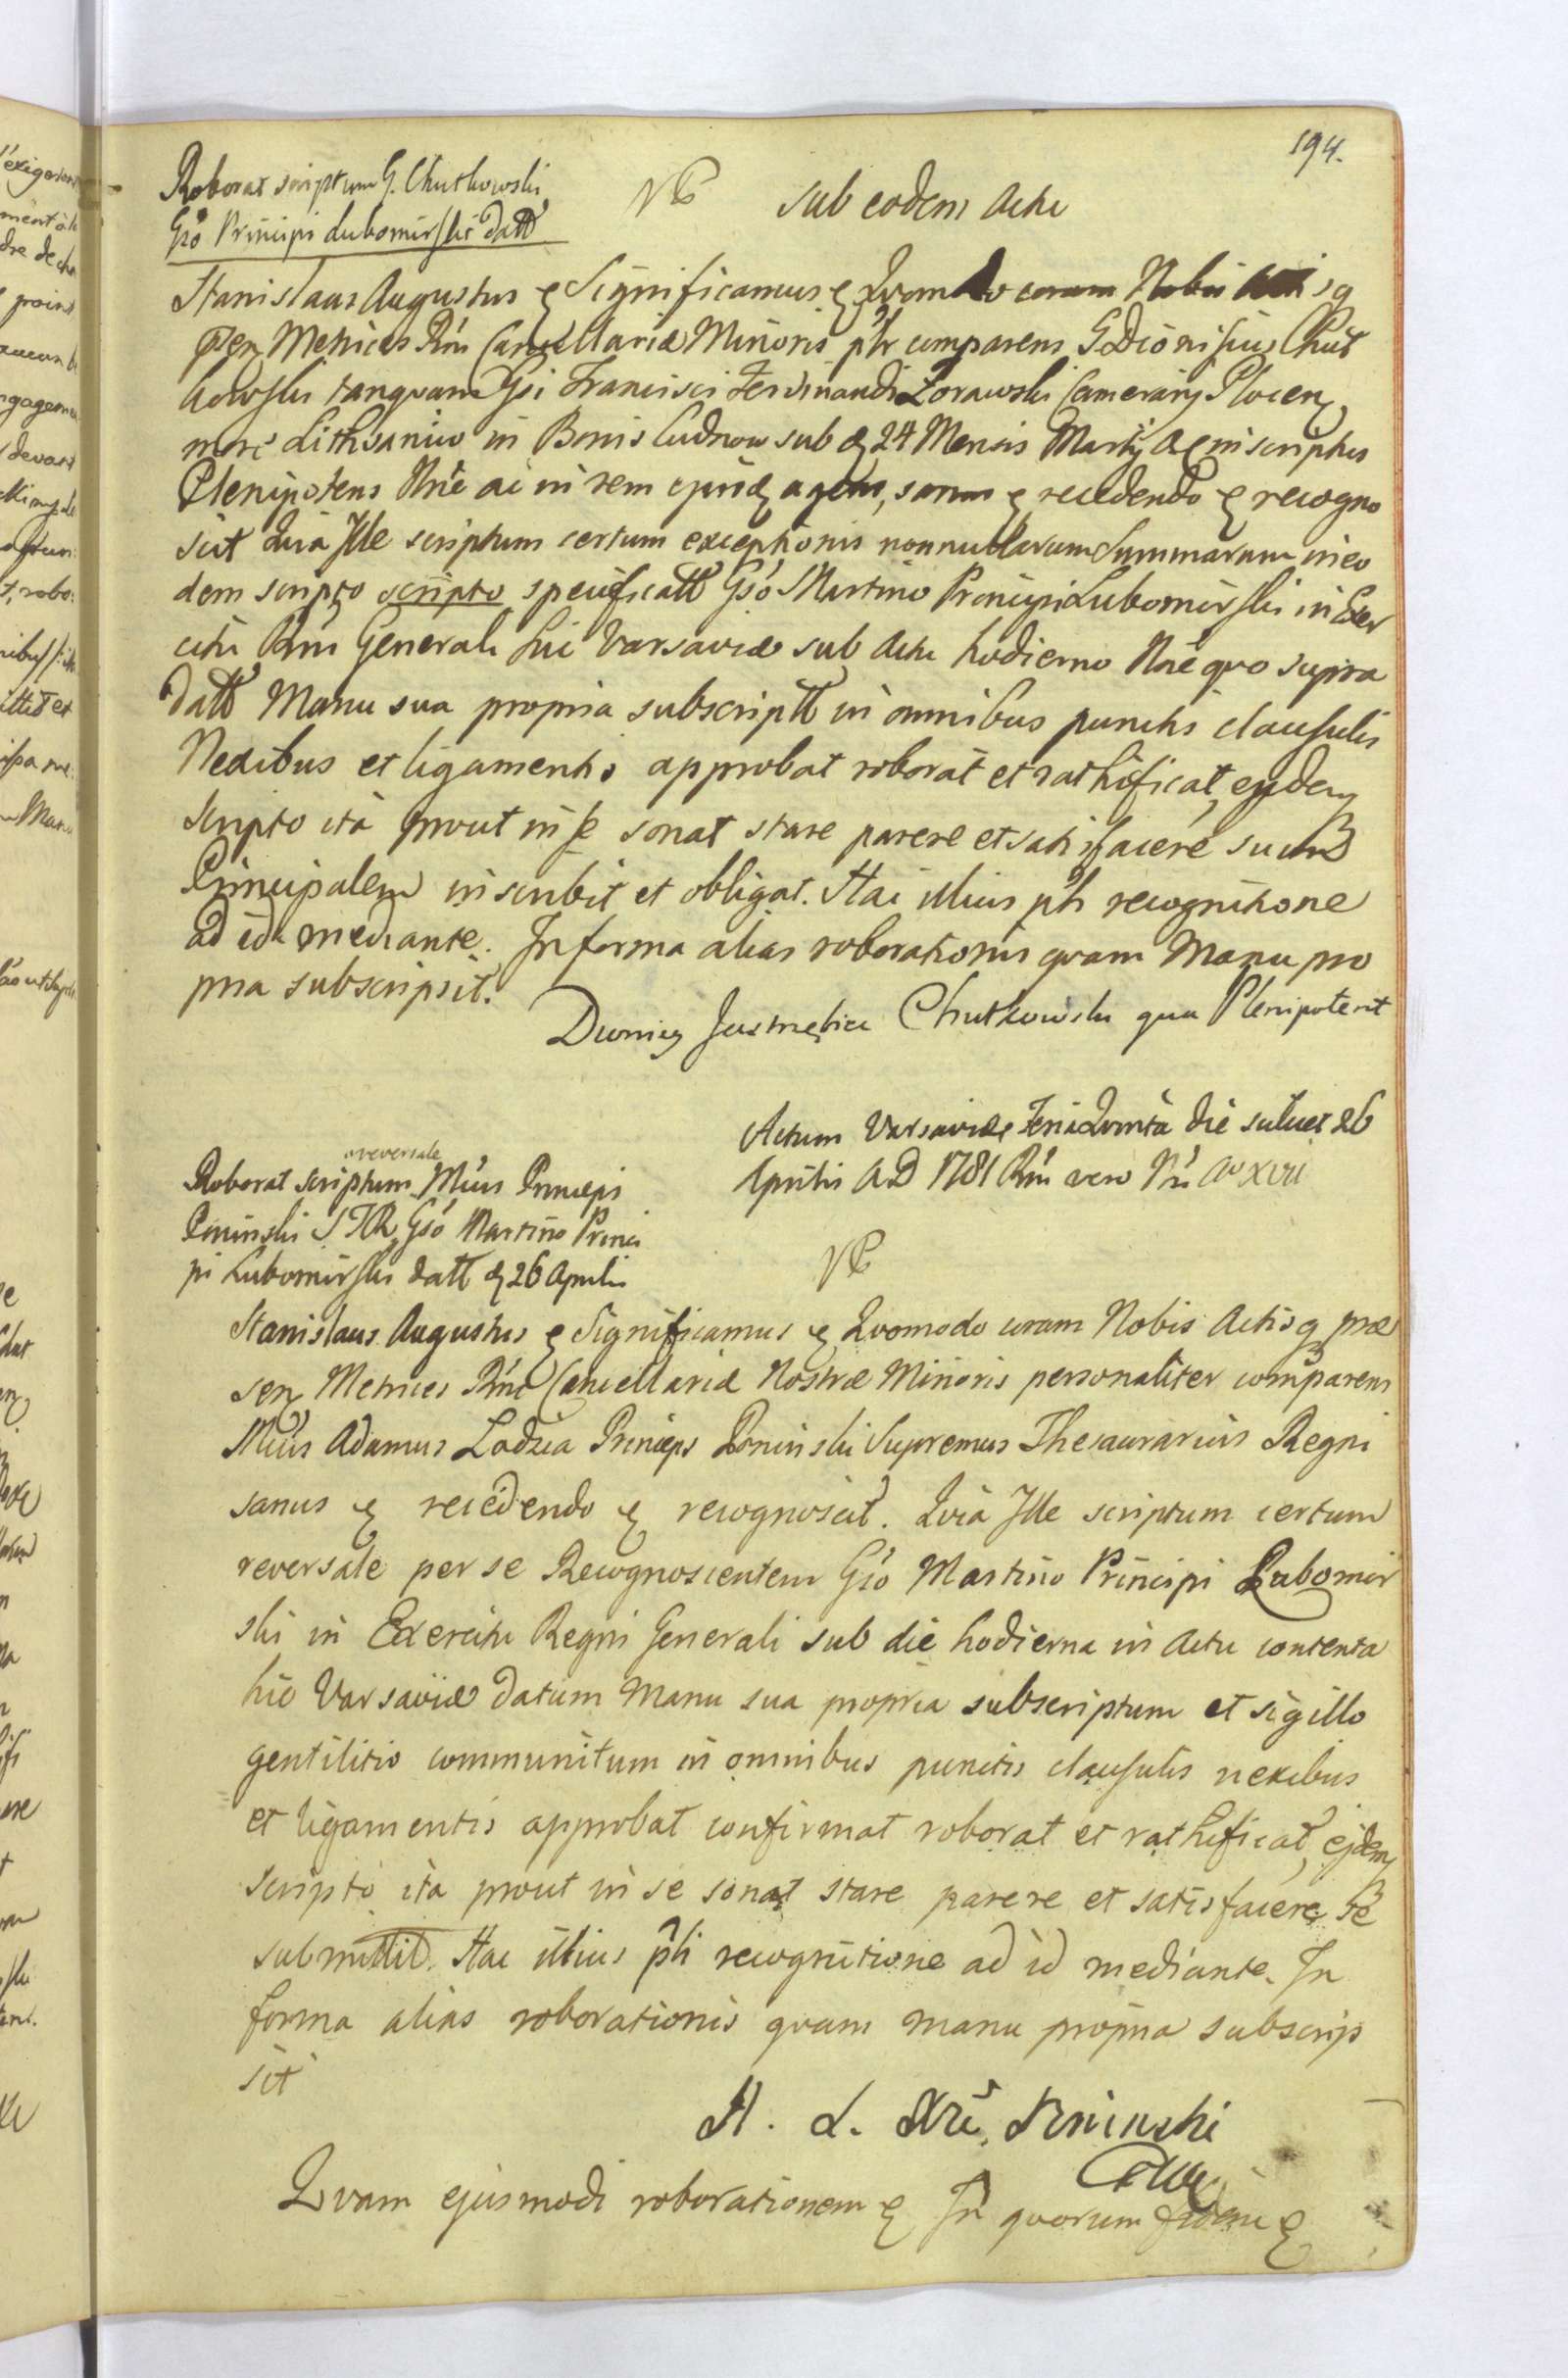 194.
Roborat scriptum G. Chutkowski
Gso Principi Lubomirski datt
VC
sub eodem Actu
Stanislaus Augustus & Significamus & Quomodo coram Nobis Actisq
psen Metrices Rni Cancellariæ Minoris phr comparens G Dionisius Chut
kowski tanquam Gsi Francisci Ferdinandi Zorawski Camerarij Plocen
more Lithvanico in Bonis Cudnow sub d 24 Mensis Martij A & inscriptus
Plenipotens Nne ac in rem ejusd agens, sanus & recedendo & recogno
scit Quia Ille scriptum certum exceptionis nonnullarum Summarum in eo
dem scripto scripto specificatt Gso Martino Principi Lubomirski in Exer
citu Rni Generali hic Varsaviæ sub Actu hodierno Nne quo supra
datt Manu sua propria subscriptt in omnibus punctis clausulis
Nexibus et ligamentis approbat roborat et rathificat, ejdem
scripto ita prout in se sonat stare parere et satisfacere suum
Principalem inscribit et obligat. Hac illius ph recognitione
ad id mediante. In forma alias roborationis quam Manu pro
pria subscripsit.
Dionizy Jastrzębiec Chutkowski qua Plenipotent
Actum Varsaviæ Feria Quinta die scilicet 26
Aprilis AD 1781 Rni vero Nri Ao XVII
reversale
Roborat scriptum Mius Princeps
Poninski STR Gso Martino Princi
pi Lubomirski datt d 26 Aprilis
VC
Stanislaus Augustus & Significamus & Quomodo coram Nobis Actisq præ
sen Metrices Rni Cancellariæ Nostræ Minoris personaliter comparens
Mius Adamus Lodzia Princeps Poninski Supremus Thesaurarius Regni
sanus & recedendo & recognoscit. Quia Ille scriptum certum
reversale per se Recognoscentem Gso Martino Principi Lubomir
ski in Exercitu Regni Generali sub die hodierna in Actu contenta
hic Varsaviæ datum Manu sua propria subscriptum et sigillo
gentilitio communitum in omnibus punctis clausulis nexibus
et ligamentis approbat confirmat roborat et rathificat, ejdem
scripto ita prout in se sonat stare parere et satisfacere se
submittit. Hac illius phi recognitione ad id mediante. In
forma alias roborationis quam manu propria subscrip
sit
A. L. Xże Poninski
Quam ejusmodi roborationem & In quorum fidem &